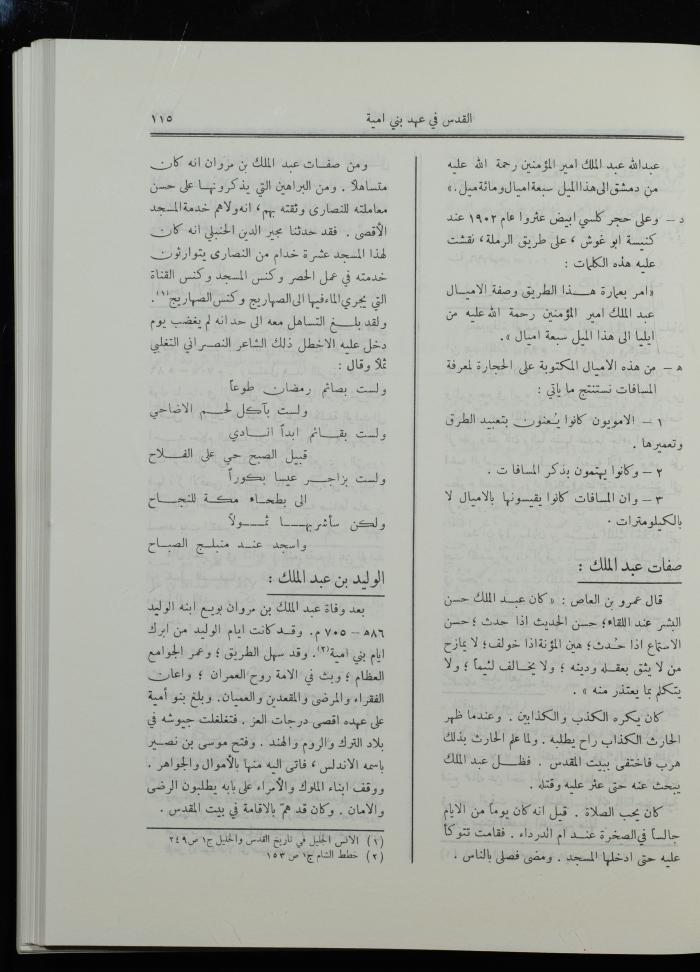 القدس في عهد بني امية
١١٥
عبدالله عبد الملك امير المؤمنين رحمة الله عليه
من دمشق الى هذا الميل سبعة اميال ومائة ميل . »
د – وعلى حجر كلسي ابيض عثروا عام ١٩٠٢ عند
كنيسة ابو غوش ، على طريق الرملة ، نقشت
عليه هذه الكلمات :
« امر بعمارة هـــذا الطريق وصفة الاميــال
عبد الملك امير المؤمنين رحمة الله عليه من
ايليا الى هذا الميل سبعة اميال » .
ه – من هذه الاميال المكتوبة على الحجارة لمعرفة
المسافات نستنتج ما يأتي :
١ – الامويون كانوا يُعنون بتعبيد الطرق
وتعميرها .
٢ – وكانوا يهتمون بذكر المسافات .
٣ – وان المسافات كانوا يقيسونها بالاميال لا
بالكيلومترات .
صفات عبد الملك :
قال عمرو بن العاص : « كان عبـد الملك حسن
البشر عند اللقاء؛ حسن الحديث اذا حدث ؛ حسن
الاستماع اذا حُدث؛ هين المؤنة اذا خولف؛ لا يمازح
من لا يثق بعقله ودينه ؛ ولا يخالف لئيماً ؛ ولا
يتكلم بما يعتذر منه » .
كان يكره الكذب والكذابين . وعندما ظهر
الحارث الكذاب راح يطلبه . ولما علم الحارث بذلك
هرب فاختفى ببيت المقدس . فظـل عبد الملك
يبحث عنه حتى عثر عليه وقتله .
كان يحب الصلاة . قيل انه كان يوماً من الايام
جالساً في الصخرة عنـد ام الدرداء . فقامت تتوكأ
عليه حتى ادخلها المسجد . ومضى فصلى بالناس .
ومن صفـات عبد الملك بن مروان انه كان
متساهلاً . ومن البراهين التي يذكرونها على حسن
معاملته للنصارى وثقته بهم، انه ولاهم خدمة المسجد
الأقصى . فقد حدثنا مجير الدين الحنبلي انه كان
لهذا المسجد عشرة خدام من النصارى يتوارثون
خدمته في عمل الحصر وكنس المسجد وكنس القناة
التي يجري الماء فيها الى الصهاريج وكنس الصهاريج(١).
ولقد بلــغ التساهل معه الى حد انه لم يغضب يوم
دخل عليه الاخطل ذلك الشاعر النصراني التغلبي
ثملاً وقال :
ولست بصائم رمضان طوعاً
ولست بآكل لحم الاضاحي
ولست بقــائم ابداً انــادي
قبيل الصبح حي على الفــلاح
ولست بزاجـر عيسا بكوراً
الى بطحـاء مكة للنجـاح
ولكن سأشربهـــا ثمــولاً
واسجد عنـد منبلج الصباح
الوليد بن عبد الملك :
بعد وفاة عبد الملك بن مروان بويع ابنه الوليد
٨٦ه – ٧٠٥ م. وقـد كانت ايام الوليد من ابرك
ايام بني امية(٢). وقد سهل الطريق ؛ وعمر الجوامع
العظام ؛ وبث في الامة روح العمران ؛ واعان
الفقراء والمرضى والمقعدين والعميان. وبلغ بنو أمية
على عهده اقصى درجات العز . فتغلغلت جيوشه في
بلاد الترك والروم والهند . وفتح موسى بن نصير
باسمه الاندلس ، فأتى اليه منها بالأموال والجواهر .
ووقف ابناء الملوك والأمراء على بابه يطلبون الرضى
والامان . وكان قد همّ بالاقامة في بيت المقدس .
(١) الانس الجليل في تاريخ القدس والخليل ج١ ص ٢٤٩
(٢) خطط الشام ج١ ص ١٥٣